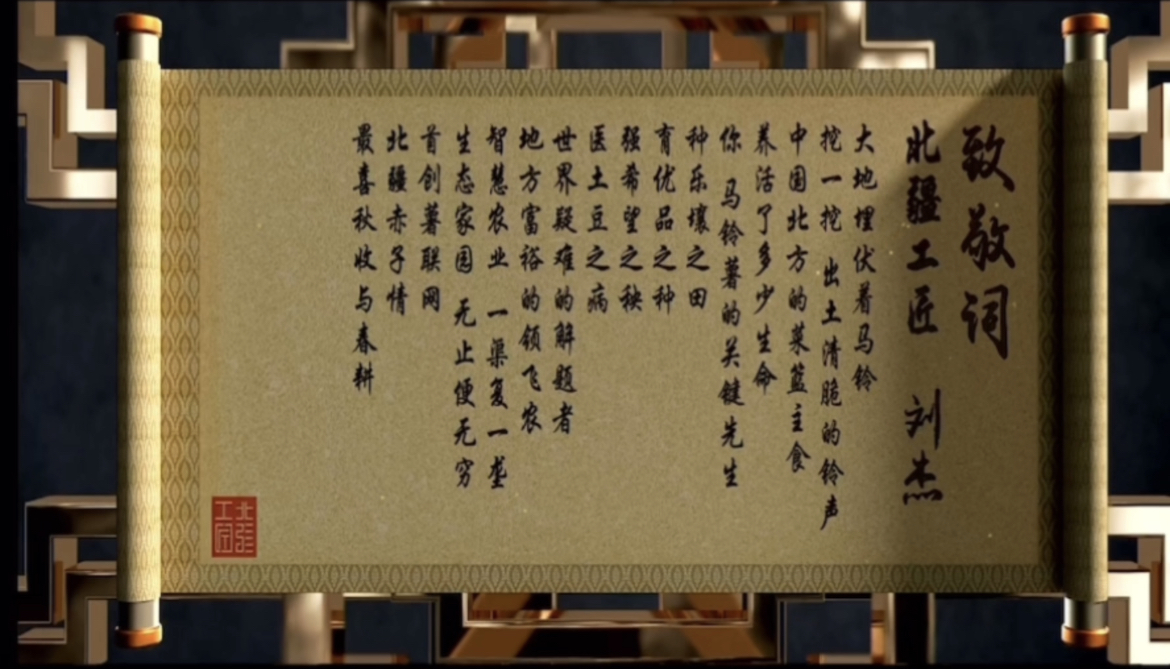 致敬词
北疆工匠 刘杰
大地埋伏着马铃
挖一挖 出土清脆的铃声
中国北方的菜篮主食
养活了多少生命
你 马铃薯的关键先生
种乐壤之田
育优品之种
强希望之秧
医土豆之病
世界疑难的解题者
地方富裕的领飞农
智慧农业 一渠复一垄
生态家园 无止便无穷
首创薯联网
北疆赤子情
最喜秋收与春耕
北疆
工匠